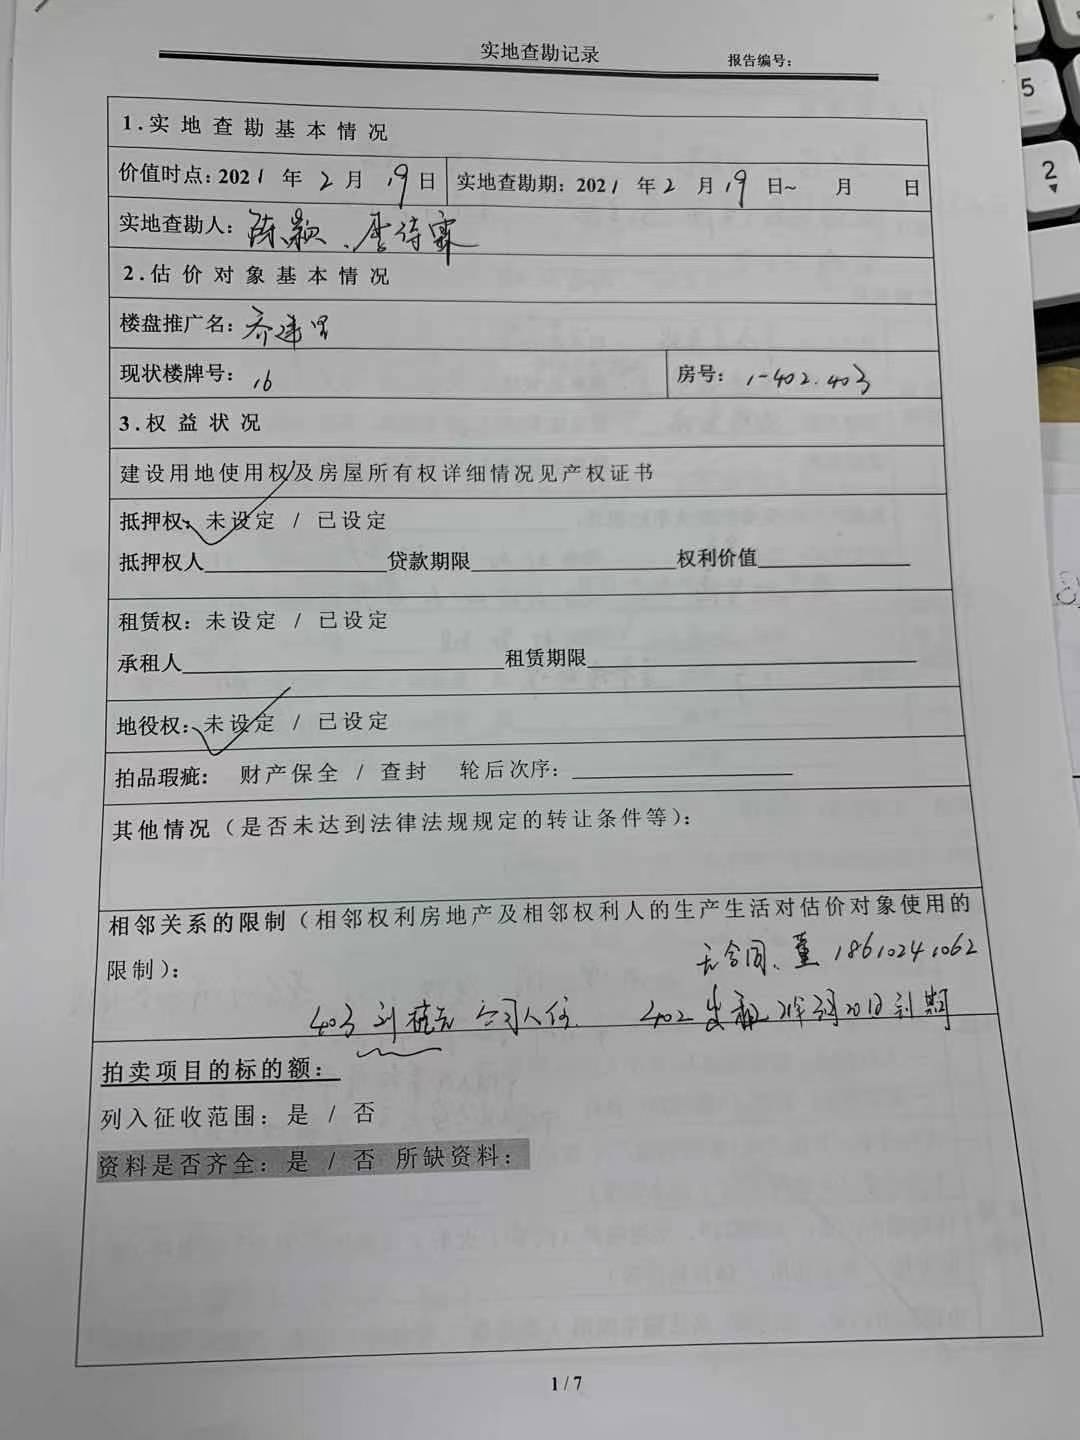 实地查勘记录
报告编号：
1.实地查勘基本情况
价值时点：2021年2月19日 实地查勘期：2021年2月19日~ 月 日
实地查勘人：陈颖、
2.估价对象基本情况
楼盘推广名：乔建里
现状楼牌号：16 房号：1-402.403
3.权益状况
建设用地使用权及房屋所有权详细情况见产权证书
抵押权：未设定 / 已设定
抵押权人 贷款期限 权利价值
租赁权：未设定 / 已设定
承租人 租赁期限
地役权：未设定 / 已设定
拍品瑕疵： 财产保全 / 查封 轮后次序：
其他情况（是否未达到法律法规规定的转让条件等）：
相邻关系的限制（相邻权利房地产及相邻权利人的生产生活对估价对象使用的
限制）： 无合同、董 18610241062
403 刘 公司人住. 402 出租 3月20日到期
拍卖项目的标的额：
列入征收范围：是 / 否
资料是否齐全：是 / 否 所缺资料：
1 / 7
5
2